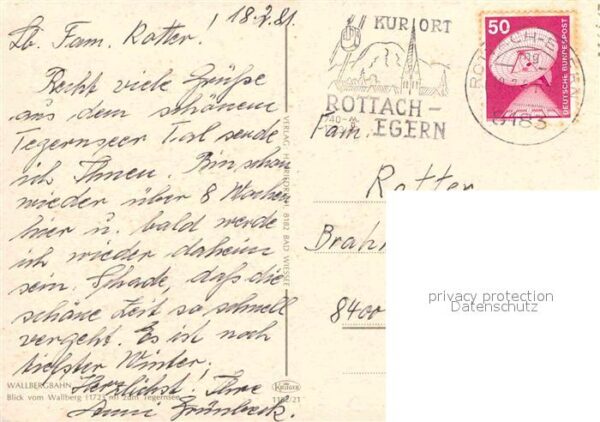 18.2.81.
Lb. Fam. Rotter!
Recht viele Grüße
aus dem schönen
Tegernseer Tal sende
ich Ihnen. Bin schon
wieder über 8 Wochen
hier u. bald werde
ich wieder daheim
sein. Schade, daß die
schöne Zeit so schnell
vergeht. Es ist noch
tiefster Winter.
Herzlichst! Ihre
Anni Grünbeck.
WALLBERGBAHN
Blick vom Wallberg (1723 m) zum Tegernsee
8182 BAD WIESSEE
KRÜGER
KURORT
ROTTACH-
EGERN
740-
8183
50
DEUTSCHE BUNDESPOST
Fam.
Rotter
Brah
8400
privacy protection
Datenschutz